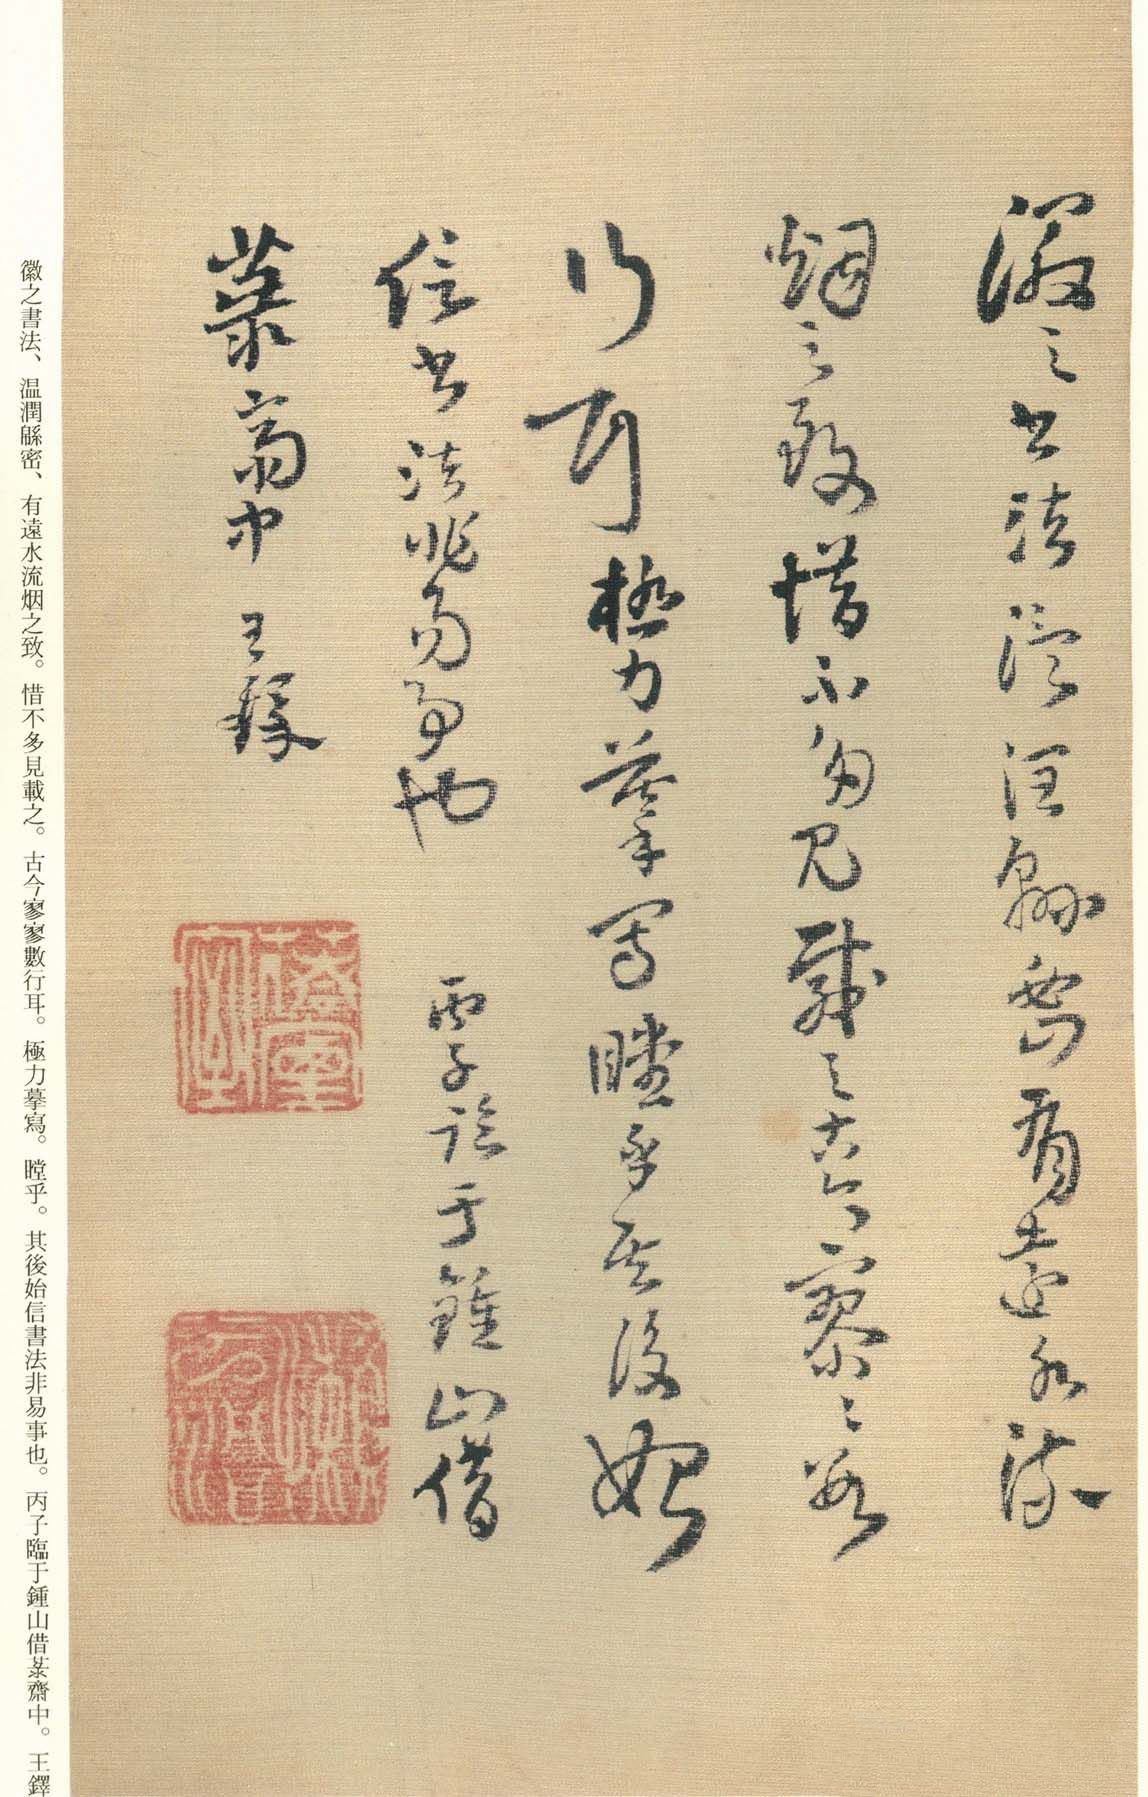 徽之書法温潤緜密有遠水流
烟之致惜不多見載之古今寥〻數
行耳極力摹寫瞠乎其後始
信書法非易事也 丙子臨于鍾山借
菉齋中 王鐸
徽之書法、温潤緜密、有遠水流烟之致。惜不多見載之。古今寥寥數行耳。極力摹寫。瞠乎。其後始信書法非易事也。丙子臨于鍾山借菉齋中。王鐸